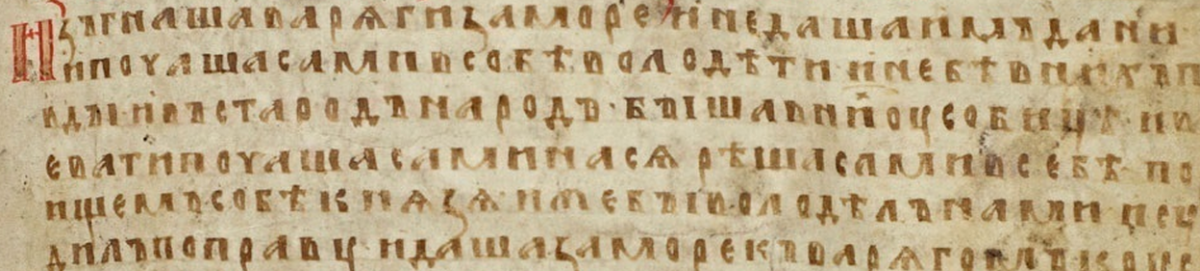 Изъгнаша варѧги за море и недаша имъ дани
ипочаша сами в собѣ володѣти и не бѣ в нихъ п
вдъı и въста родъ на родъ · бъıша в ни оусобицѣ и в
евати почаша сами на сѧ рѣша сами в себѣ по
ищемъ собѣ кнѧзѧ иже бъı володѣлъ нами и
дилъ по праву идаша за море къ варѧгом